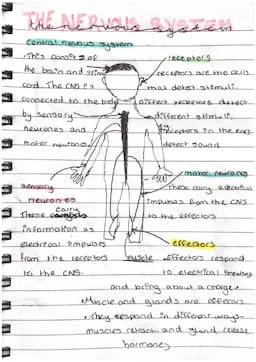 THE NERVOUS SYSTEM
the nervous system
central nervous system
• This consists of
the brain and spinal
cord. The CNS is
connected to the body
by sensory
neurones and
motor neurones.
receptors
receptors are the cells
that detect stimuli.
Different receptors detect
different stimuli,
receptors in the ears
detect sound
motor neurons
These carry electrical
impulses from the CNS
to the effectors
sensory
neurones
These carry
information as
electrical impulses
from the receptors
to the CNS.
effectors
muscle
effectors respond
to electrical impulses
and bring about a change.
• Muscle and glands are effectors
• They respond in different ways-
muscles retract and gland release
hormones